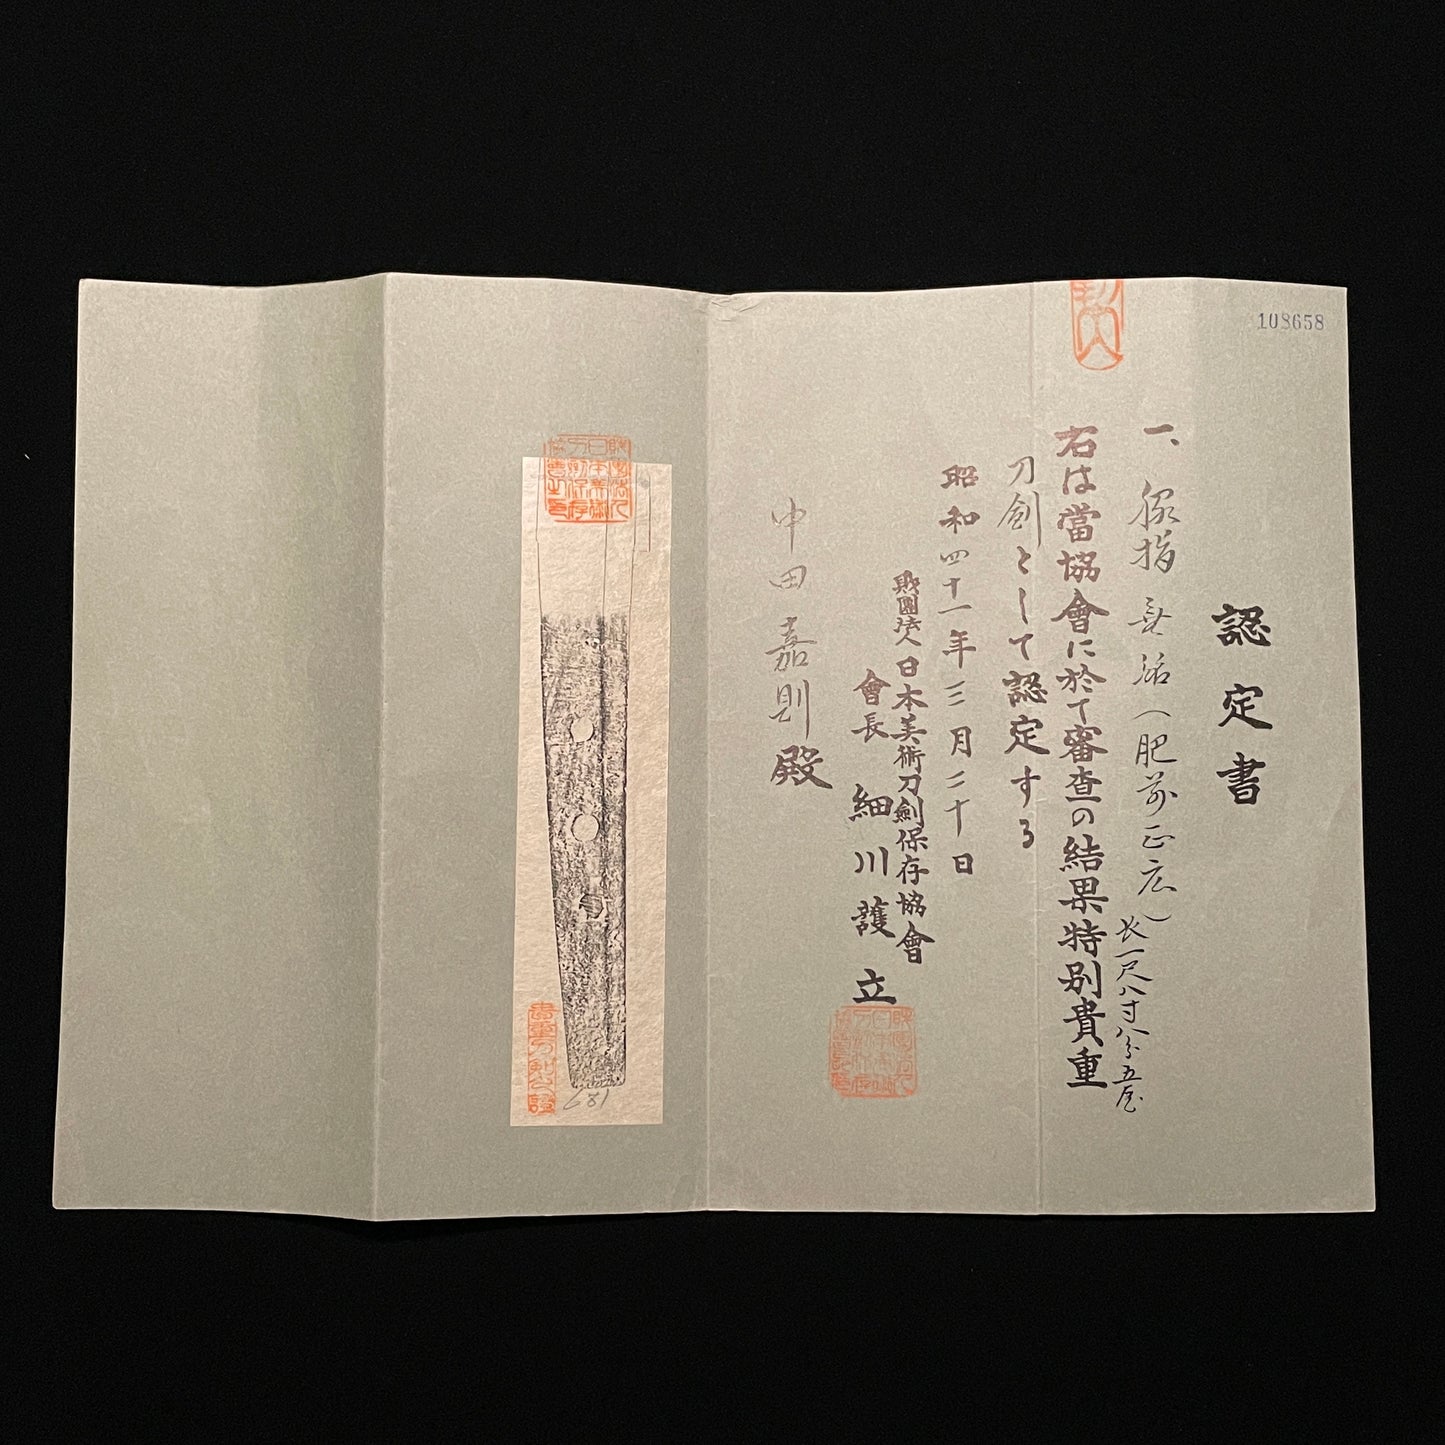 108658
認定書
一、脇指 無銘(肥前正広)
長一尺八寸八分五厘
右は當協會に於て審査の結果特別貴重
刀劍として認定する
昭和四十一年三月二十日
財團法人 日本美術刀劍保存協會
會長 細川護立
中田嘉則殿
貴重刀剣之證
681